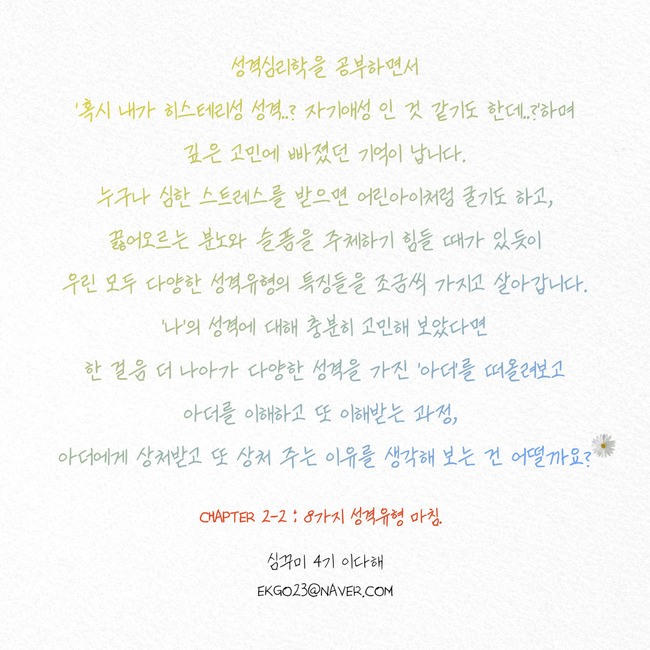 성격심리학을 공부하면서
'혹시 내가 히스테리성 성격..? 자기애성 인 것 같기도 한데..?'하며
깊은 고민에 빠졌던 기억이 납니다.
누구나 심한 스트레스를 받으면 어린아이처럼 굴기도 하고,
끓어오르는 분노와 슬픔을 주체하기 힘들 때가 있듯이
우린 모두 다양한 성격유형의 특징들을 조금씩 가지고 살아갑니다.
'나'의 성격에 대해 충분히 고민해 보았다면
한 걸음 더 나아가 다양한 성격을 가진 '아더'를 떠올려보고
아더를 이해하고 또 이해받는 과정,
아더에게 상처받고 또 상처 주는 이유를 생각해 보는 건 어떨까요?
CHAPTER 2-2 : 8가지 성격유형 마침.
심꾸미 4기 이다해
EKGO23@NAVER.COM